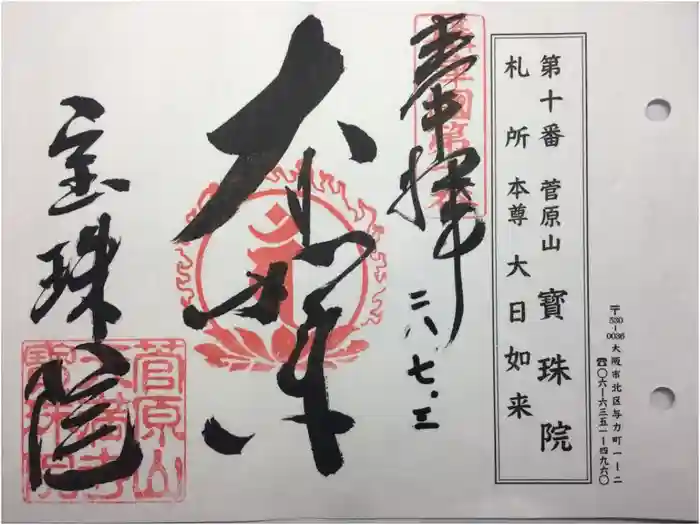 〒530-0036大阪市北区与力町一ー二
☎〇六ー六三五一ー四九六〇
第十番 菅原山 寶珠院
札所 本尊大日如来
奉拝
二八.七.三
大日如来
宝珠院
菅原山
寶珠院